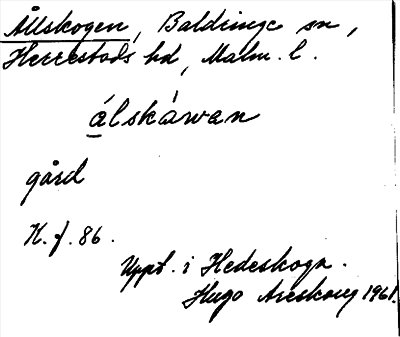 Ållskogen, Baldringe sn,
Herrestads hd, Malm. l.
álskáwan
gård
K. f. 86.
Uppt. i Hedeskoga.
Hugo Areskoug 1961.